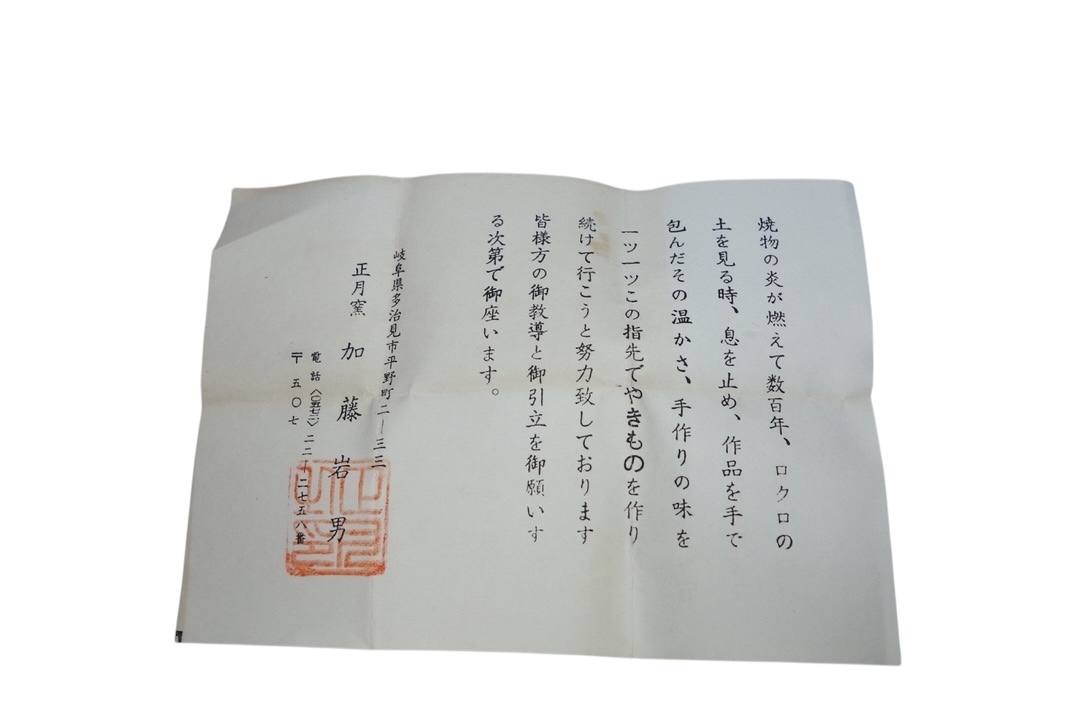 焼物の炎が燃えて数百年、ロクロの
土を見る時、息を止め、作品を手で
包んだその温かさ、手作りの味を
一ツ一ツこの指先でやきものを作り
続けて行こうと努力致しております
皆様方の御教導と御引立を御願いす
る次第で御座います。
岐阜県多治見市平野町二ー三三
正月窯 加藤岩男
電話〈〇五七二〉二二ー二七五八番
〒五〇七